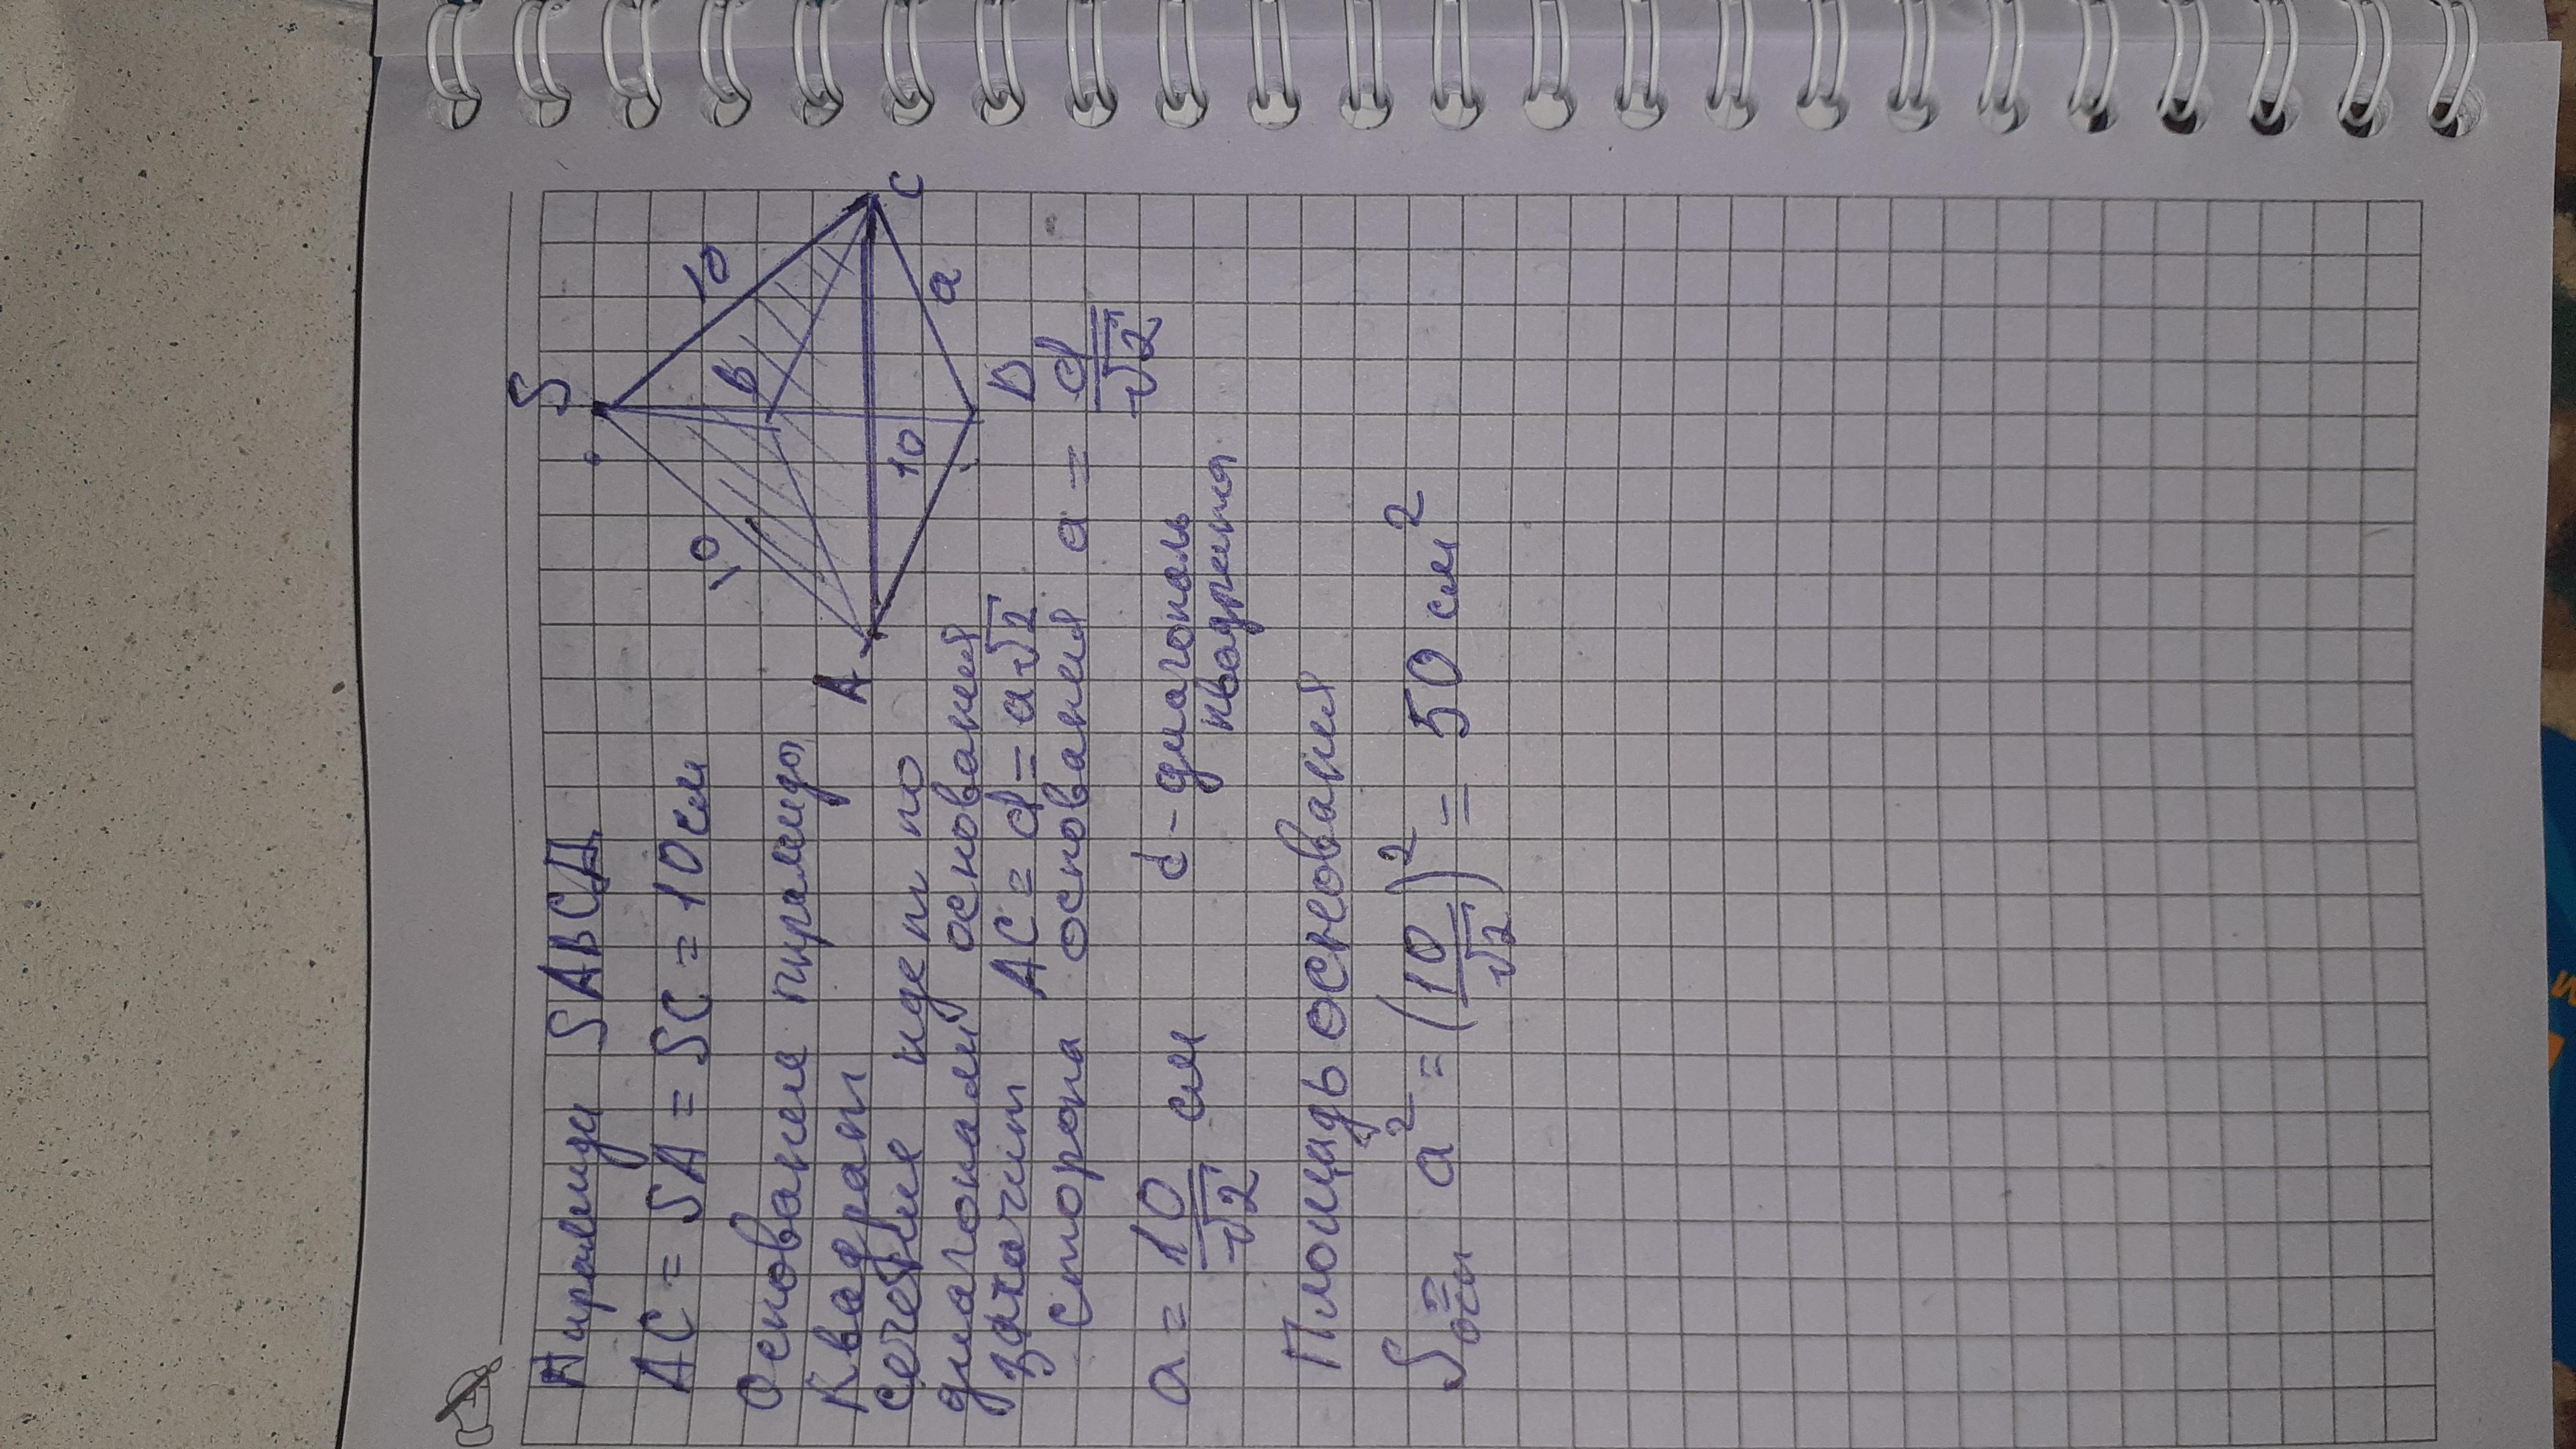 Пирамида SABCД
AC = SA = SC = 10 см
Основание пирамиды
Квадрат
сечение идет по
диагонали основания
значит AC = d = a√2
сторона основания a = d/√2
a = 10/√2 см d - диагональ
квадрата
Площадь основания
Sосн = a² = (10/√2)² = 50 см²
S
10
10
B
A
C
10
a
D